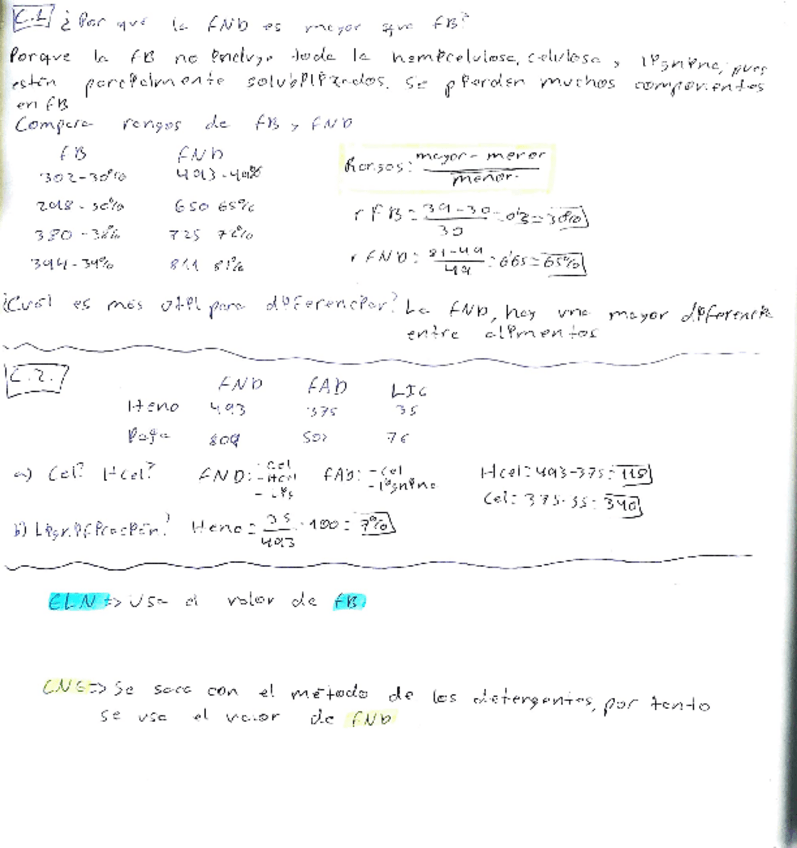 C.1 ¿Por qué la FND es mayor que FB?
Porque la FB no incluye toda la hemicelulosa, celulosa y lignina, pues
están parcialmente solubilizados. Se pierden muchos componentes
en FB
Compara rangos de FB y FND
FB FND
302-30% 493-49%
298-30% 650 65%
380-38% 725 72%
394-39% 811 81%
Rangos: mayor - menor
menor.
r FB = 39-30 = 0'3 = 30%
30
r FND: 81-49 : 0'65 = 65%
49
¿Cuál es más útil para diferenciar? La FND, hay una mayor diferencia
entre alimentos
C.2.
FND FAD LIG
Heno 493 375 35
Paja 809 507 76
a) Cel? Hcel? FND: -Cel -Hcel -Lig FAD: -cel -lignina
Hcel: 493-375: 118
Cel: 375-35: 340
b) Lignificación? Heno = 35 · 100 = 7%
493
ELN => Usa el valor de FB.
CNE => Se saca con el método de los detergentes, por tanto
se usa el valor de FND